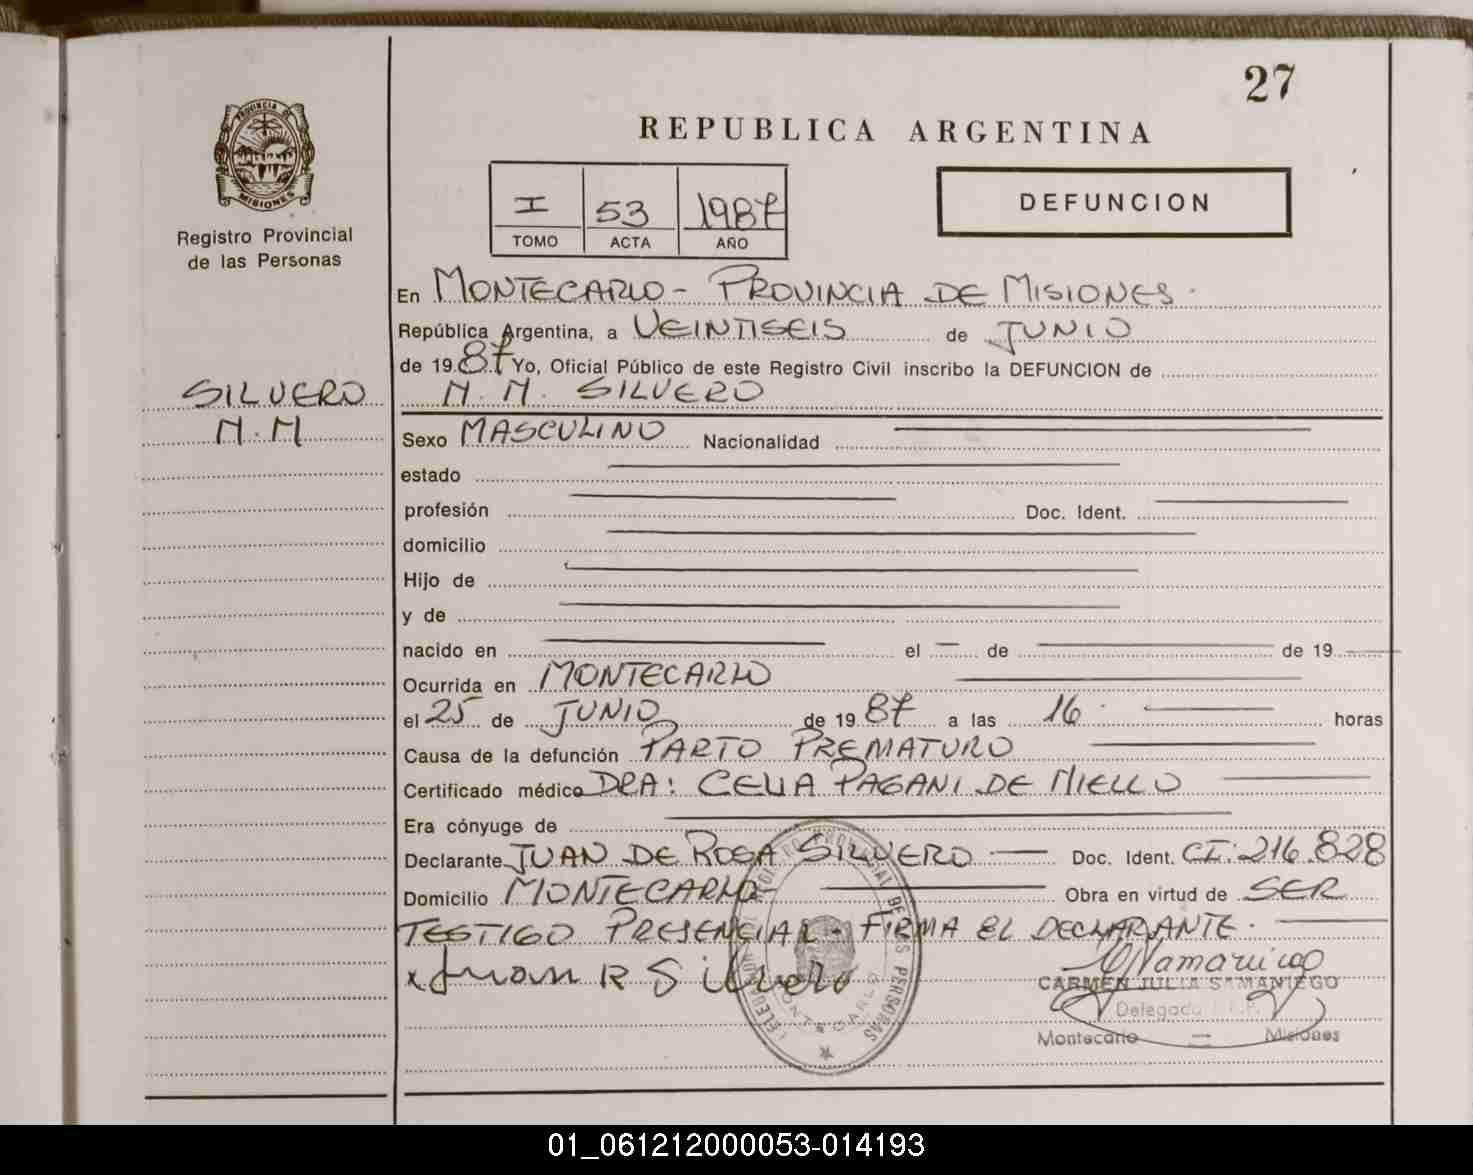 27
REPUBLICA ARGENTINA
PROVINCIA DE
MISIONES
Registro Provincial
de las Personas
I 53 1987
TOMO ACTA AÑO
DEFUNCION
En MONTECARLO - PROVINCIA DE MISIONES.
República Argentina, a VEINTISEIS de JUNIO
de 1987 Yo, Oficial Público de este Registro Civil inscribo la DEFUNCION de
N. N. SILVERO
SILVERO
N. N
Sexo MASCULINO Nacionalidad
estado
profesión Doc. Ident.
domicilio
Hijo de
y de
nacido en el de de 19
Ocurrida en MONTECARLO
el 25 de JUNIO de 1987 a las 16 horas
Causa de la defunción PARTO PREMATURO
Certificado médico DRA: CELIA PAGANI DE NIELLO
Era cónyuge de
Declarante JUAN DE ROSA SILVERO Doc. Ident. CI: 216.828
Domicilio MONTECARLO Obra en virtud de SER
TESTIGO PRESENCIAL - FIRMA EL DECLARANTE.
x Juan R Silvero
CARMEN JULIA SAMANIEGO
Delegada
Montecarlo — Misiones
01_061212000053-014193